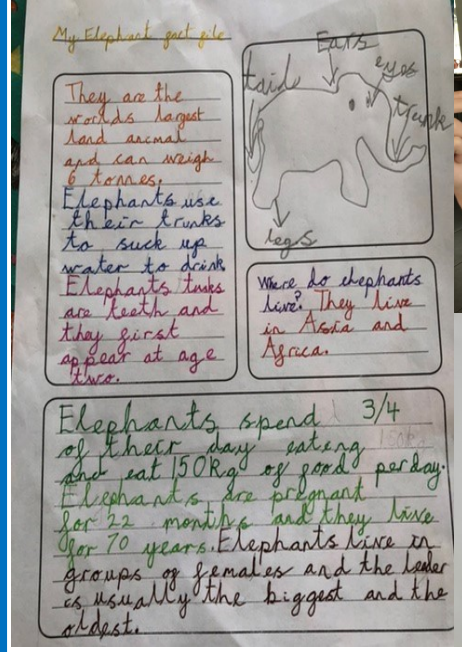 My Elephant fact file
They are the
worlds largest
land animal
and can weigh
6 tonnes.
Elephants use
their trunks
to suck up
water to drink
Elephants tusks
are teeth and
they first
appear at age
two.
Ears
eyes
trunk
legs
Where do elephants
live? They live
in Asia and
Africa.
Elephants spend 3/4
of their day eating
and eat 150kg of food per day.
Elephants are pregnant
for 22 months and they live
for 70 years. Elephants live in
groups of females and the leader
is usually the biggest and the
oldest.